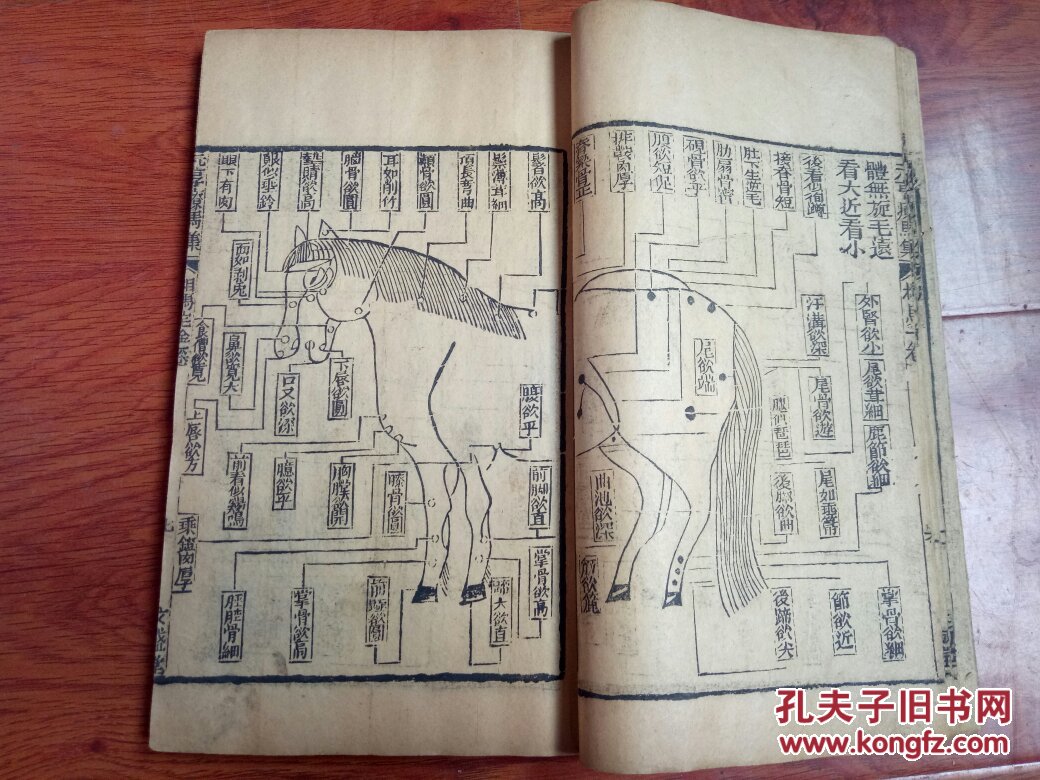 體無旋毛遠
看大近看小
後看似
接脊骨短
肚下生逆毛
肋扇骨
硯骨欲平
腹欲短促
排鞍肉厚
脊梁骨正
外腎欲小
尾欲茸細
鹿節欲細
汗溝欲深
尾骨欲遊
尾欲端
腿似琵琶
尾如垂箒
後脚欲曲
曲池欲深
後蹄欲尖
節欲近
掌骨欲細
鬐欲高
鬃薄茸細
項長弯曲
額骨欲圓
耳如削竹
腦骨欲圓
眼似垂鈴
眼下有肉
面如剥兎
食槽欲寬
鼻欲寬大
口叉欲深
下唇欲圓
上唇欲方
腰欲平
前看似鷄鳴
臆欲平
胸膛欲開
膝骨欲圓
前脚欲直
掌骨欲高
大欲直
前蹄欲圓
掌骨欲高
骨細
乘鐙肉厚
元亨療馬集
孔夫子旧书网
www.kongfz.com